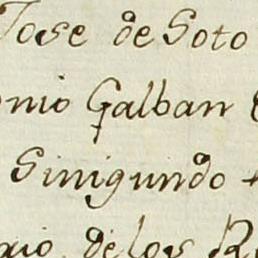 Jose de Soto
onio Galban
Sinigundo
de los